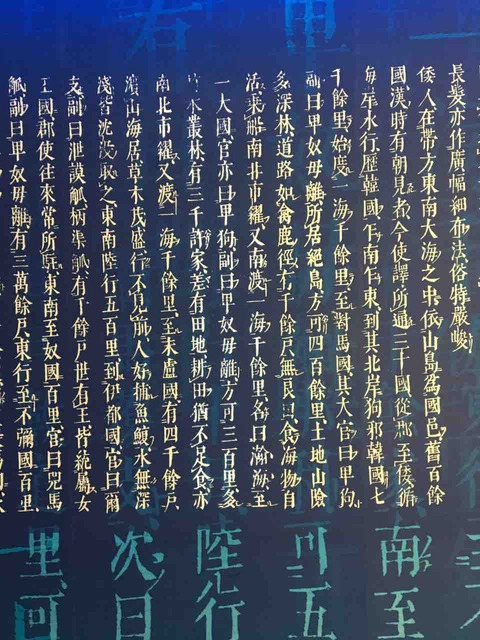 長髮亦作廣幅細布法俗特嚴峻
倭人在帶方東南大海之中依山島爲國邑舊百餘
國漢時有朝見者今使譯所通三十國從郡至倭循
海岸水行歷韓國乍南乍東到其北岸狗邪韓國七
千餘里始度一海千餘里至對馬國其大官曰卑狗
副曰卑奴毋離所居絕島方可四百餘里土地山險
多深林道路如禽鹿徑有千餘戶無良田食海物自
活乘船南北市糴又南渡一海千餘里名曰瀚海至
一大國官亦曰卑狗副曰卑奴毋離方可三百里多
竹木叢林有三千許家差有田地耕田猶不足食亦
南北市糴又渡一海千餘里至末盧國有四千餘戶
濱山海居草木茂盛行不見前人好捕魚鰒水無深
淺皆沈沒取之東南陸行五百里到伊都國官曰爾
支副曰泄謨觚柄渠觚有千餘戶世有王皆統屬女
王國郡使往來常所駐東南至奴國百里官曰兕馬
觚副曰卑奴毋離有二萬餘戶東行至不彌國百里
南至
可五
陸行
次曰
里可